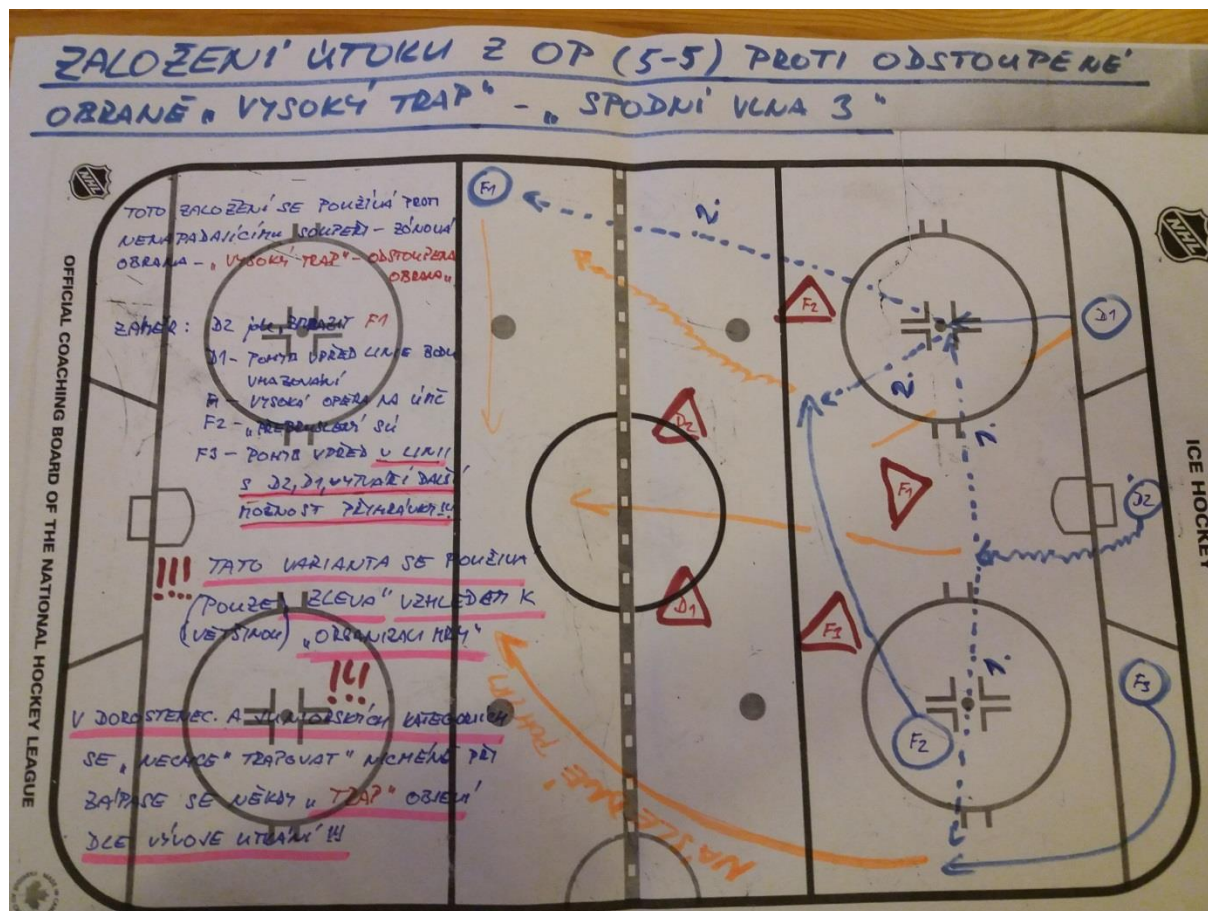 ZALOŽENÍ ÚTOKU Z OP (5-5) PROTI ODSTOUPENÉ
OBRANĚ „VYSOKÝ TRAP“ - „SPODNÍ VLNA 3“
NHL
NHL
OFFICIAL COACHING BOARD OF THE NATIONAL HOCKEY LEAGUE
ICE HOCKEY
TOTO ZALOŽENÍ SE POUŽÍVÁ PROTI
NENAPADAJÍCÍMU SOUPEŘI - ZÓNOVÁ
OBRANA - „VYSOKÝ TRAP“ - ODSTOUPENÁ
OBRANA“
ZÁMĚR: D2 F1
D1 - POHYB VPŘED LINIE BODU
VHAZOVÁNÍ
F1 - VYSOKÁ OPORA NA ÚTOČ
F2 - „PŘEBRUSLENÍ“ SÚ
F3 - POHYB VPŘED V LINII
S D2, D1, VYTVÁŘÍ DALŠÍ
MOŽNOST PŘIHRÁVKY!!!
!!! TATO VARIANTA SE POUŽÍVÁ
(POUZE) „ZLEVA“ VZHLEDEM K
(VĚTŠINOU) „ORGANIZACI HRY“
!!!
V DOROSTENEC. A JUNIORSKÝCH KATEGORIÍCH
SE „NECHCE“ TRAPOVAT“ NICMÉNĚ PŘI
ZÁPASE SE NĚKDY „TRAP“ OBJEVÍ
DLE VÝVOJE UTKÁNÍ!!!
F1
2.
F2
D1
2.
D2
1.
F1
D2
D1
F1
1.
F3
F2
NÁSLEDNÝ POHYB